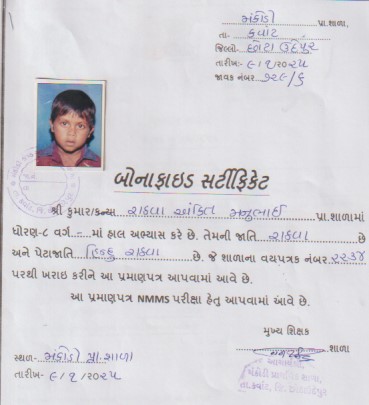 મંકોડી પ્રા.શાળા,
તા- કવાંટ
જિલ્લો- છોટા ઉદેપુર
તારીખ:- ૯/૧/૨૦૨૫
જાવક નંબર ૧૨૯/૬
બોનાફાઇડ સર્ટીફિકેટ
શ્રી કુમાર/કન્યા રાઠવા અંકિત મનુભાઈ પ્રા.શાળામાં
ધોરણ-૮ વર્ગ - માં હાલ અભ્યાસ કરે છે. તેમની જાતિ રાઠવા છે
અને પેટાજાતિ હિન્દુ રાઠવા છે. જે શાળાના વયપત્રક નંબર ૨૨૩૪
પરથી ખરાઇ કરીને આ પ્રમાણપત્ર આપવામાં આવે છે.
આ પ્રમાણપત્ર NMMS પરીક્ષા હેતુ આપવામાં આવે છે.
મુખ્ય શિક્ષક
શાળા
સ્થળ- મંકોડી પ્રા.શાળા
તારીખ- ૯/૧/૨૦૨૫